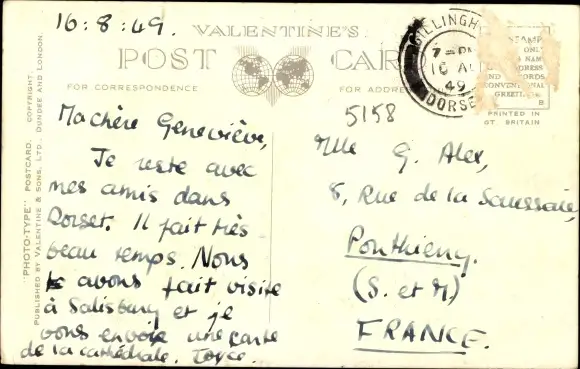 16:8:49.
VALENTINE'S
POST CARD
FOR CORRESPONDENCE
FOR ADDRESS
GILLINGHAM
7-PM
16 AU
49
DORSET
STAMP
ONLY
NAME
ADDRESS
AND WORDS
CONVENTIONAL
GREETING
B
PRINTED IN
GT. BRITAIN
"PHOTO-TYPE" POSTCARD. COPYRIGHT.
PUBLISHED BY VALENTINE & SONS, LTD., DUNDEE AND LONDON.
5158
Ma chère Geneviève,
Je reste avec
mes amis dans
Dorset. Il fait très
beau temps. Nous
avons fait visite
à Salisbury et je
vous envoie une carte
de la cathédrale. Joyce.
Mlle G. Alex,
8, Rue de la Saussaie,
Ponthierry.
(S. et M)
FRANCE.